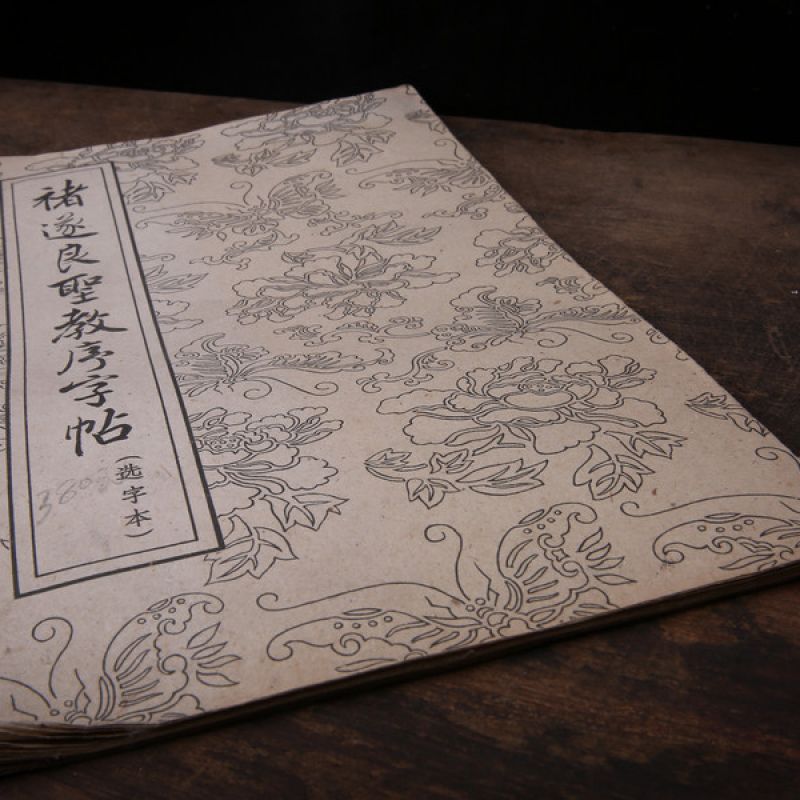 褚遂良聖教序字帖
(选字本)